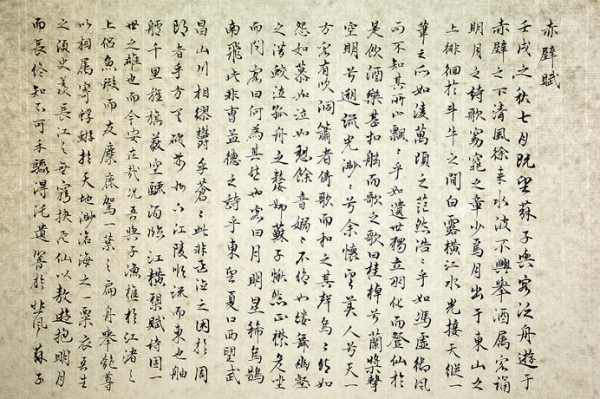 赤壁賦
壬戌之秋七月既望蘇子與客泛舟遊于
赤壁之下清風徐來水波不興舉酒屬客誦
明月之詩歌窈窕之章少焉月出于東山之
上徘徊於斗牛之間白露橫江水光接天縱一
葦之所如凌萬頃之茫然浩〻乎如馮虛御風
而不知其所止飄〻乎如遺世獨立羽化而登仙於
是飲酒樂甚扣舷而歌之歌曰桂棹兮蘭槳擊
空明兮遡流光渺〻兮余懷望美人兮天一
方客有吹洞簫者倚歌而和之其聲嗚〻然如
怨如慕如泣如愬餘音嫋〻不絕如縷舞幽壑
之潛蛟泣孤舟之嫠婦蘇子愀然正襟危坐
而問客曰何為其然也客曰月明星稀烏鵲
南飛此非曹孟德之詩乎東望夏口西望武
昌山川相繆鬱乎蒼〻此非孟德之困於周
郎者乎方其破荊州下江陵順流而東也舳
艫千里旌旗蔽空釃酒臨江橫槊賦詩固一
世之雄也而今安在哉況吾與子漁樵於江渚之
上侶魚鰕而友麋鹿駕一葉之扁舟舉匏尊
以相屬寄蜉蝣於天地渺滄海之一粟哀吾生
之須臾羨長江之無窮挾飛仙以遨遊抱明月
而長終知不可乎驟得託遺響於悲風蘇子